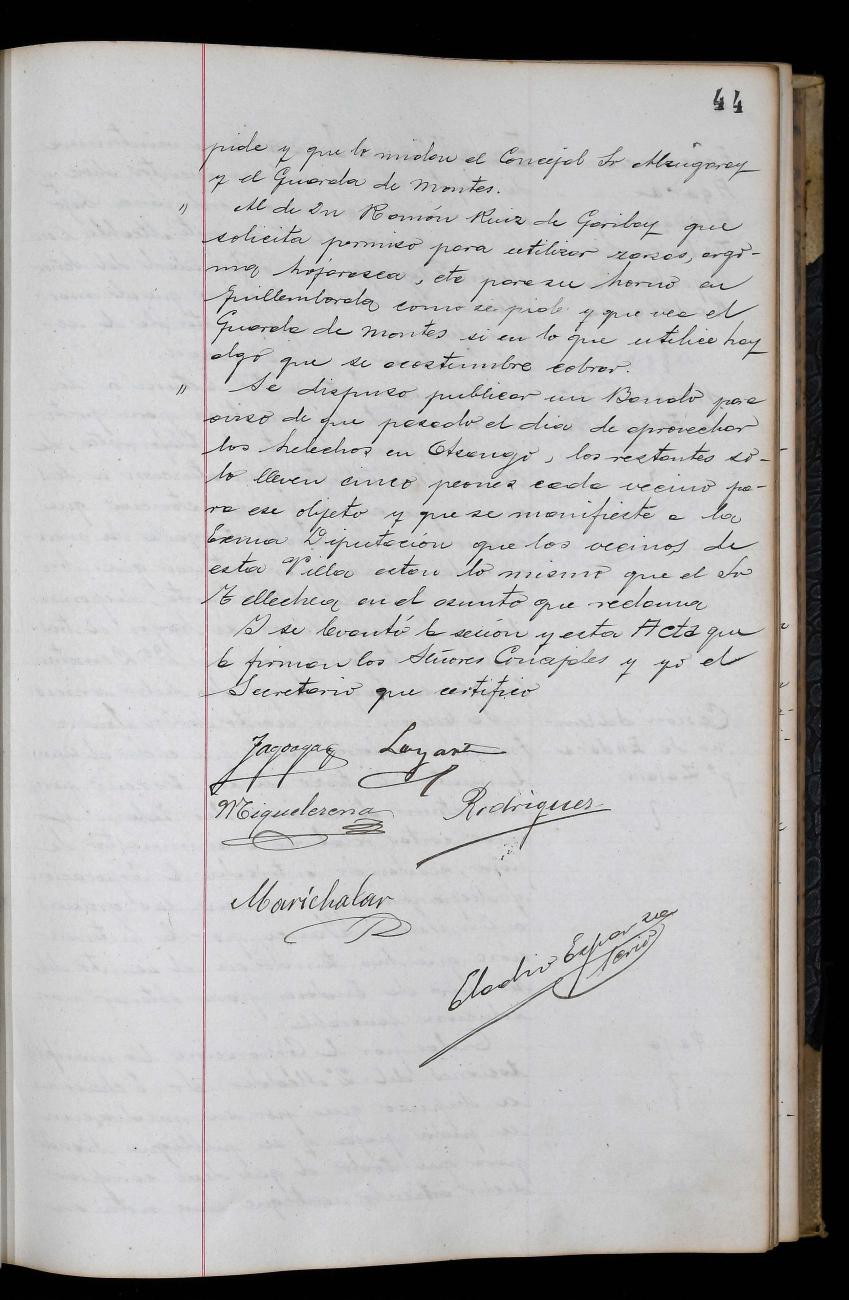 44
pide y que lo midan el Concejal Sr Alzugaray
y el Guarda de montes.
" Al de Dn Ramón Ruiz de Garibay que
solicita permiso para utilizar zarzas, argo-
ma hojarasca, etc para su horno en
Guillemborda como se pide y que vea el
Guarda de montes si en lo que utilice hay
algo que se acostumbre cobrar.
" Se dispuso publicar un Bando para
aviso de que pasado el dia de aprovechar
los helechos en Otsango, los restantes só-
lo lleven cinco peones cada vecino pa-
ra ese objeto y que se manifieste a la
Exma Diputación que los vecinos de
esta Villa estan lo mismo que el Sr
Tellechea en el asunto que reclama
Y se levantó la seción y esta Acta que
la firman los Señores Concejales y yo el
Secretario que certifico
Jagoaga Layant
Miquelerena Rodriguez
Marichalar
Eladio Esparza
Srio